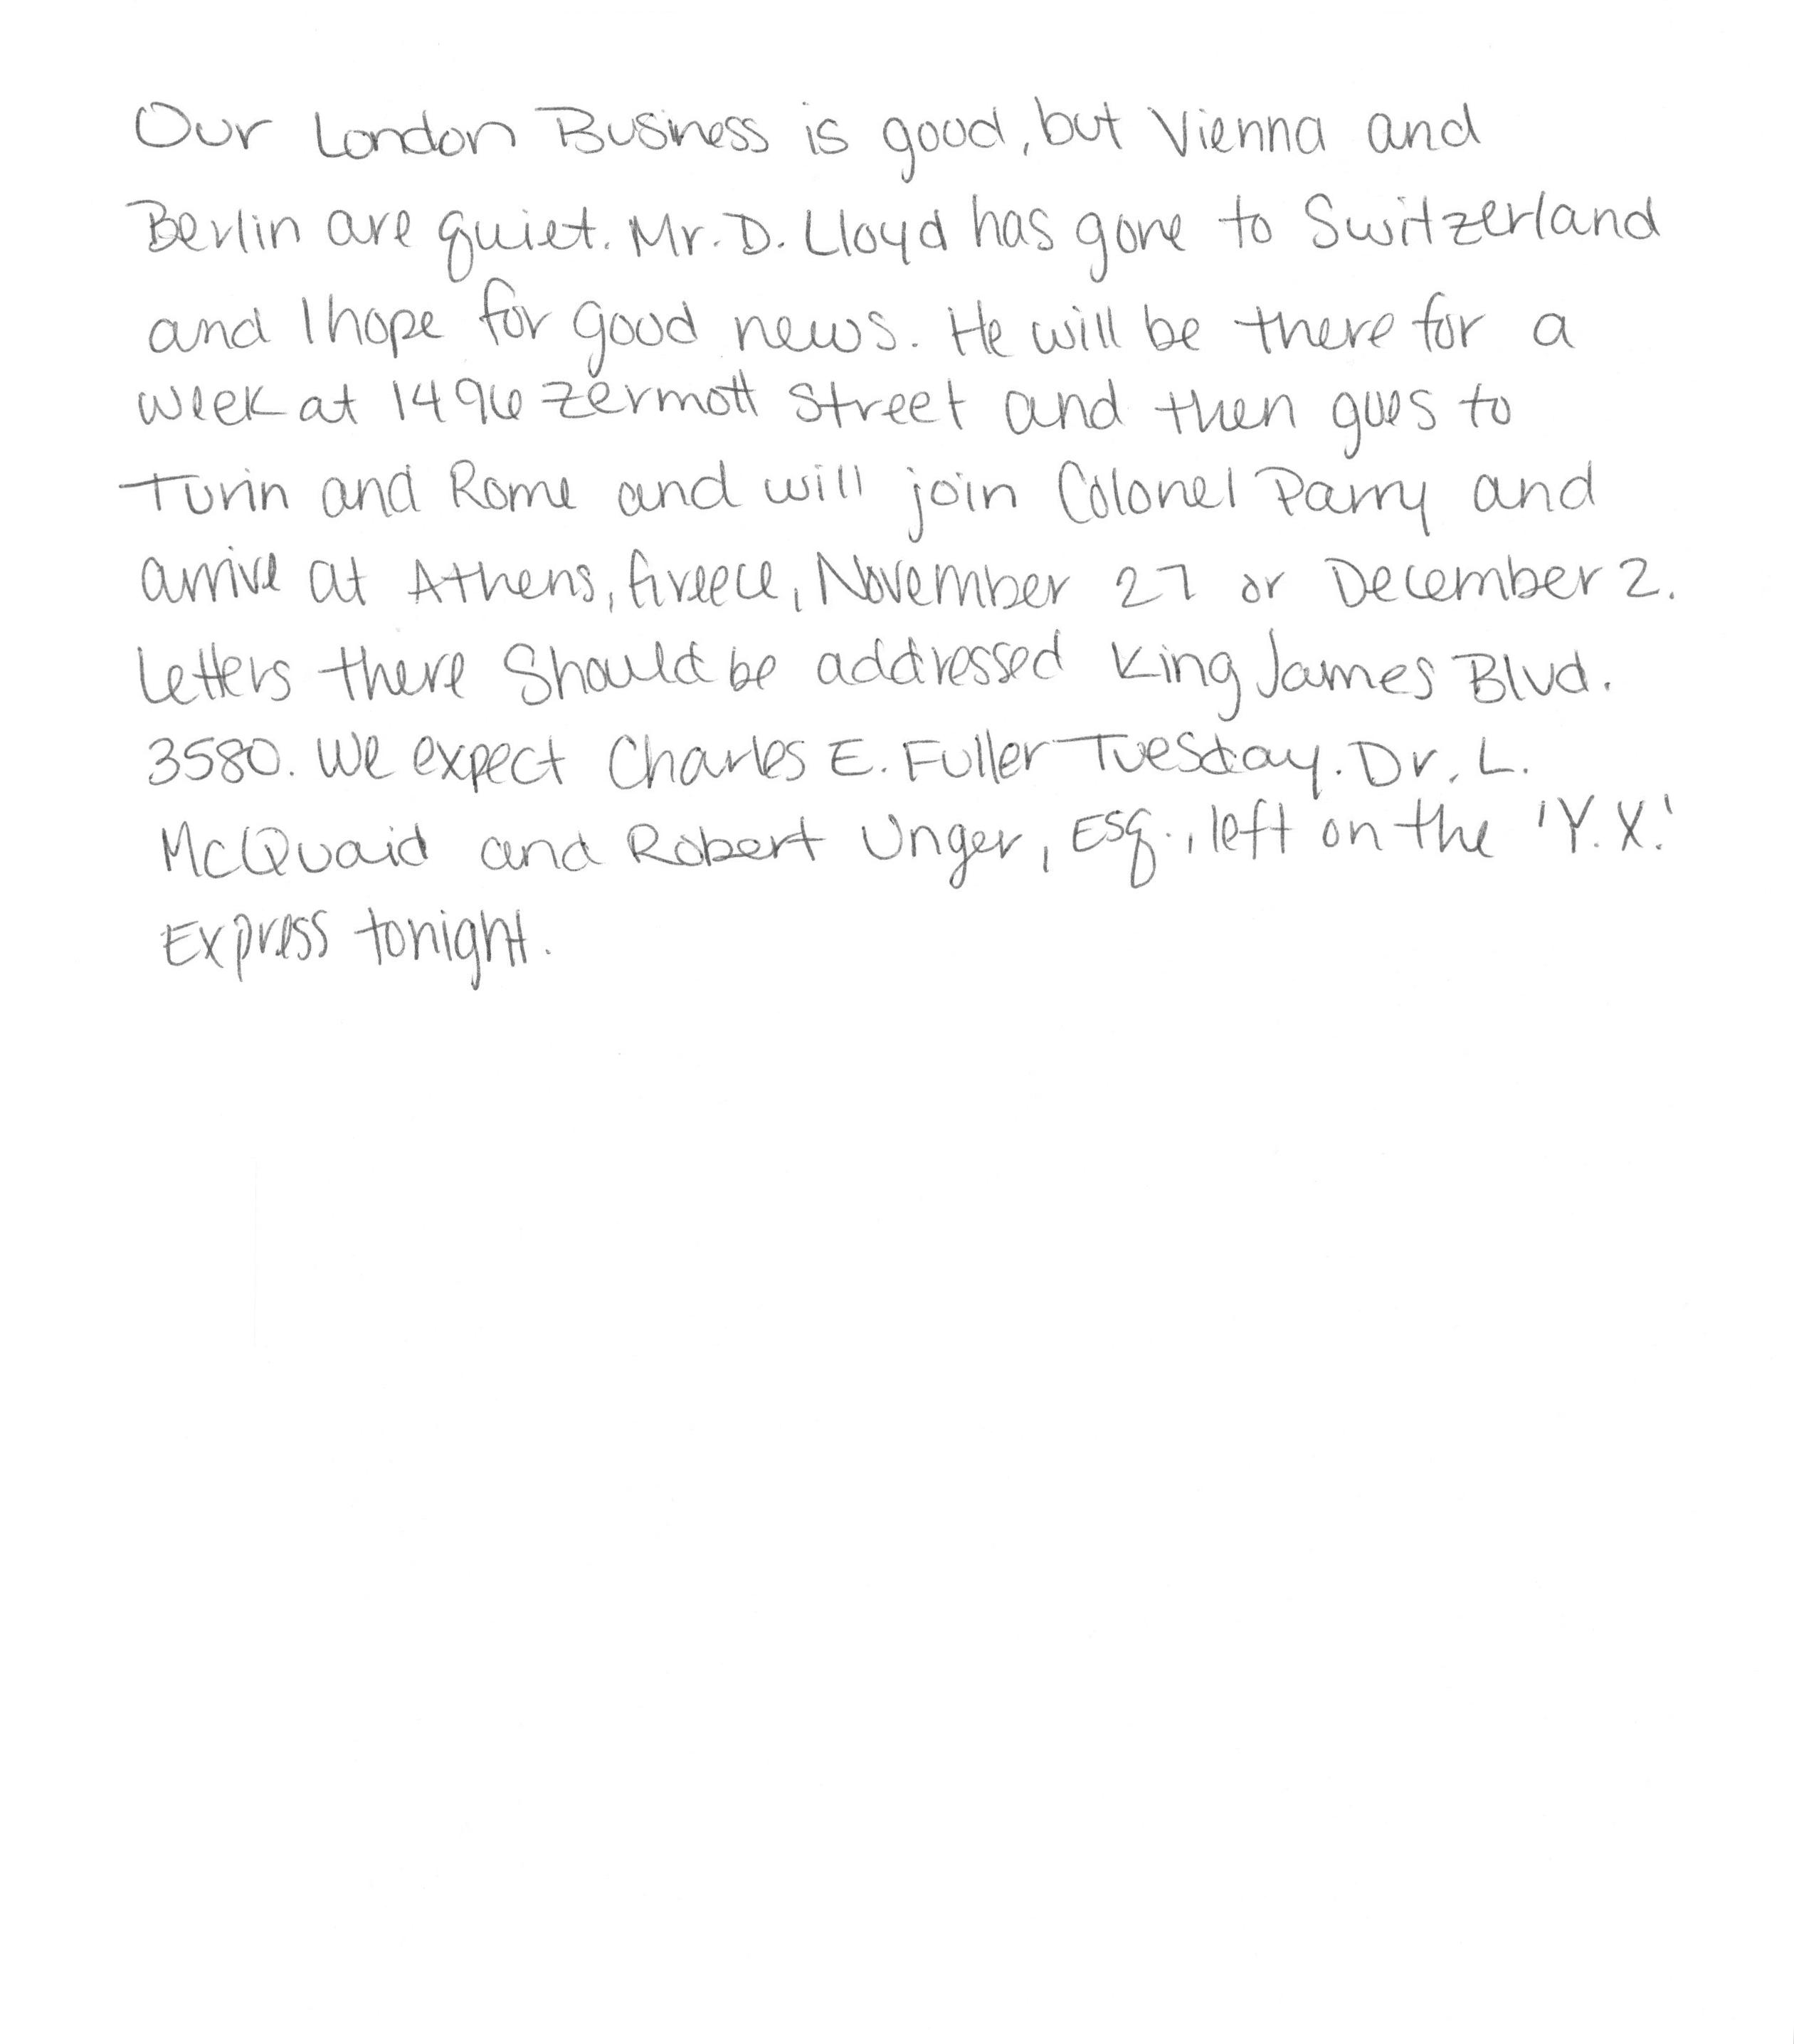 Our London Business is good, but Vienna and
Berlin are quiet. Mr. D. Lloyd has gone to Switzerland
and I hope for good news. He will be there for a
week at 1496 Zermott Street and then goes to
Turin and Rome and will join Colonel Parry and
arrive at Athens, Greece, November 27 or December 2.
Letters there Should be addressed King James Blvd.
3580. We expect Charles E. Fuller Tuesday. Dr. L.
McQuaid and Robert Unger, Esq., left on the 'Y.X.'
Express tonight.